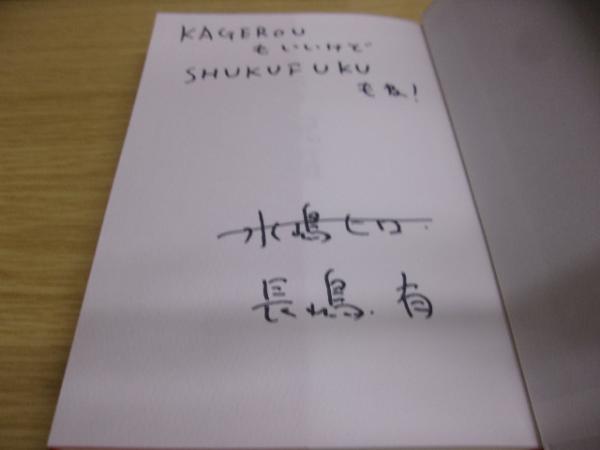 KAGEROU
もいいけど
SHUKUFUKU
もね!
水嶋ヒロ
長嶋有